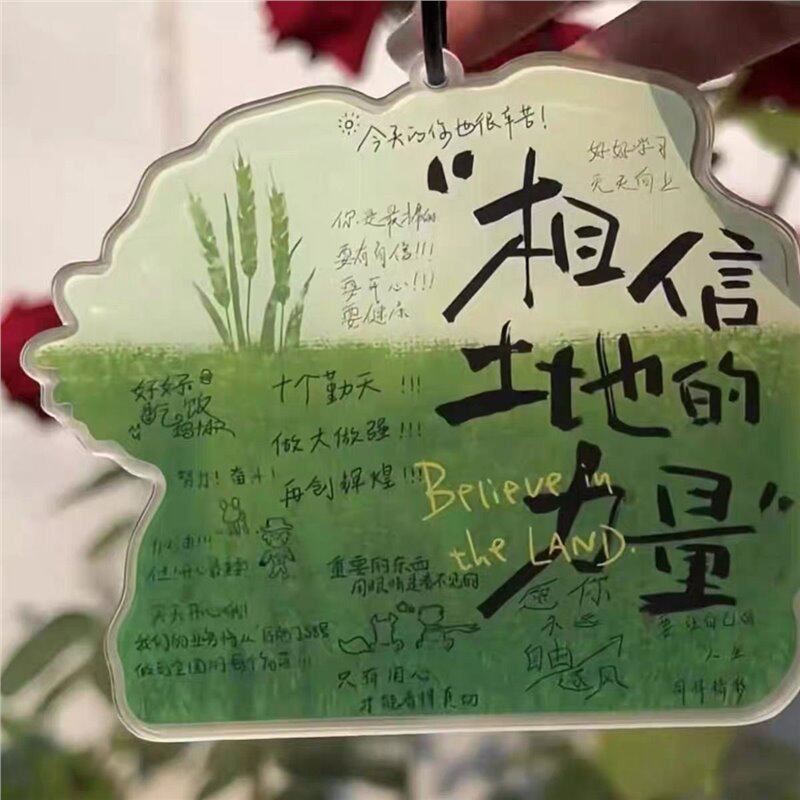 今天的你也很辛苦!
好好学习
天天向上
"相信
土地的
力量"
Believe in
the LAND.
你是最棒的
要有自信!!!
要开心!!!
要健康
好好
吃饭
十个勤天!!!
做大做强!!!
再创辉煌!!!
努力!奋斗!
加油!!!
重要的东西
用眼睛是看不见的
天天开心
只有用心
才能看得真切
愿你
永远
自由
逐风
要让自己的
人生